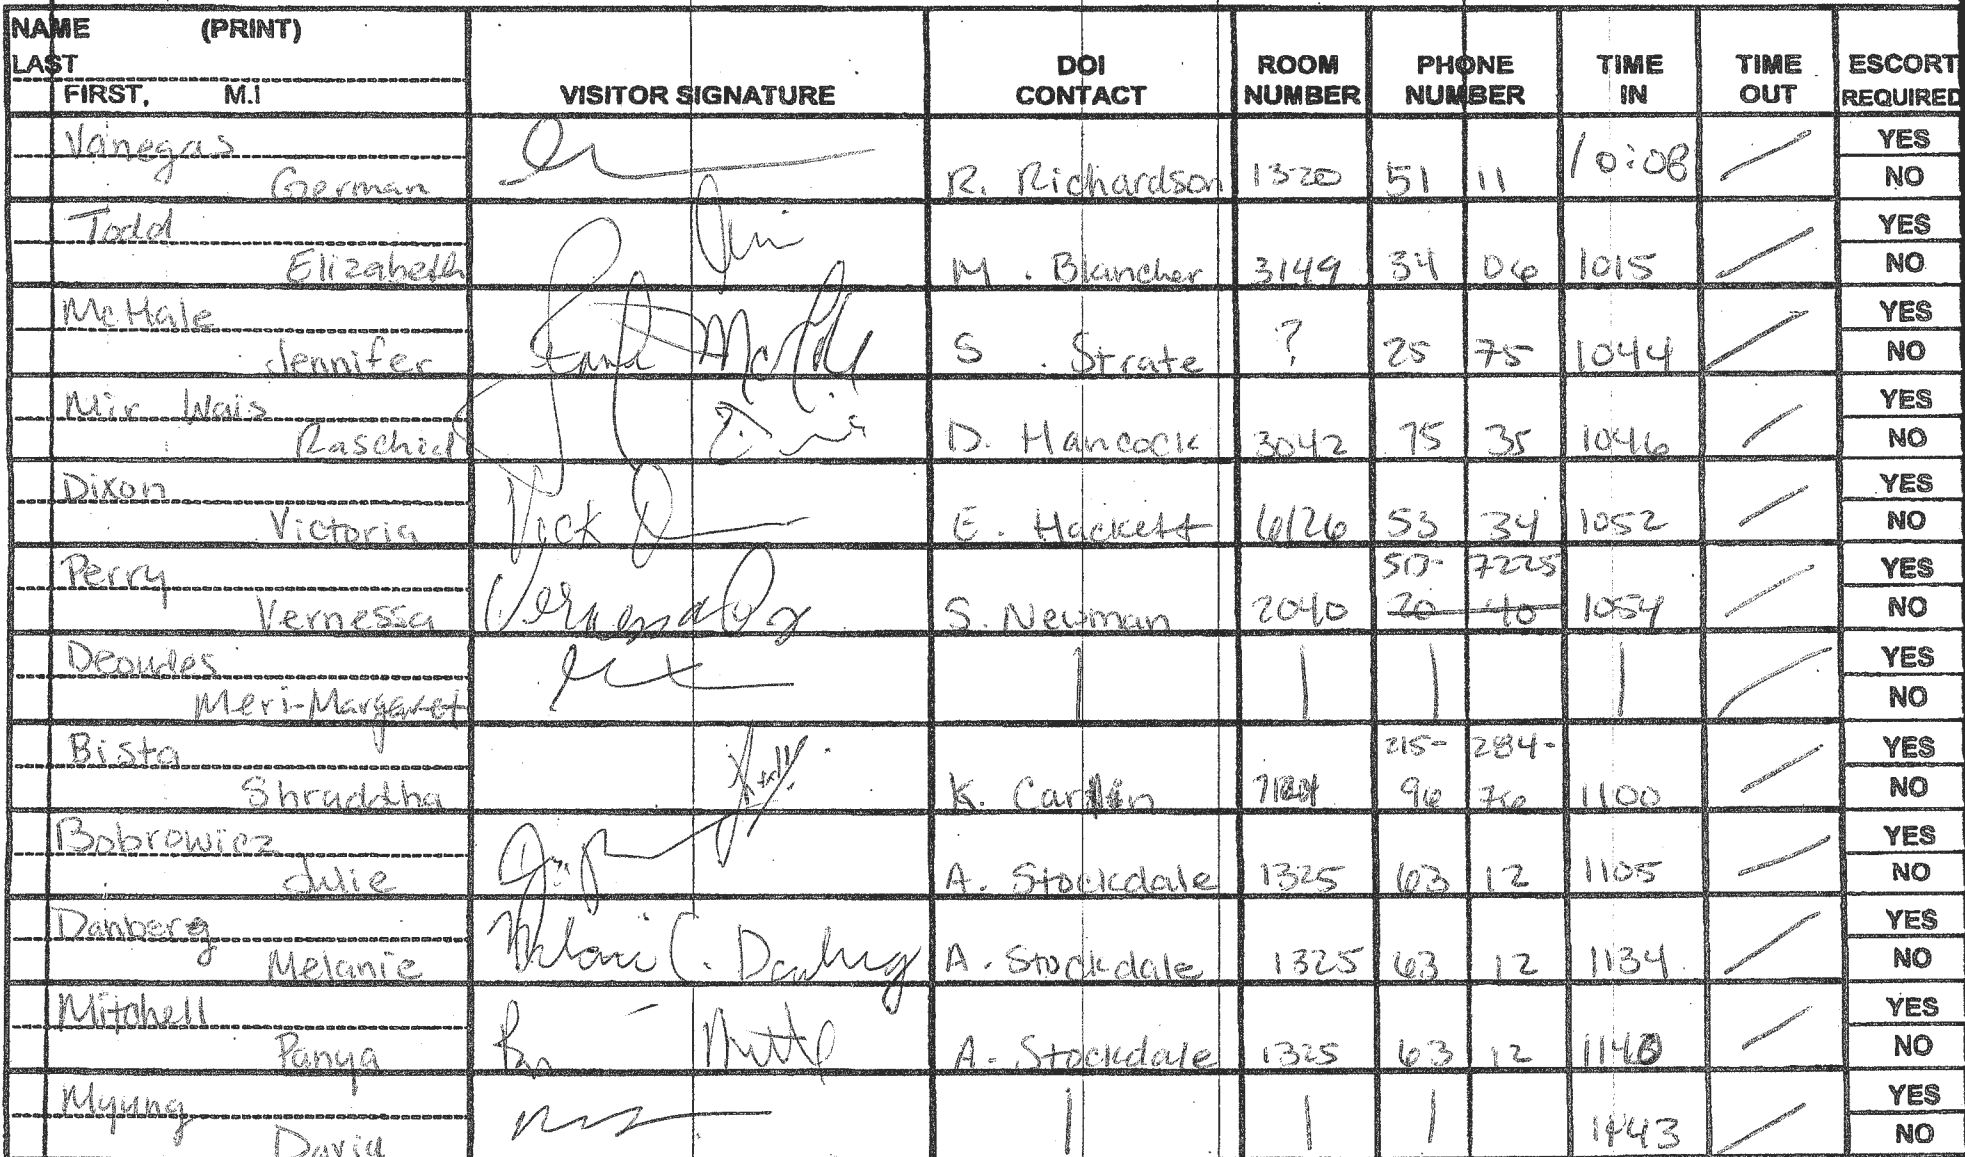 NAME (PRINT)
LAST
FIRST, M.I
VISITOR SIGNATURE
DOI CONTACT
ROOM NUMBER
PHONE NUMBER
TIME IN
TIME OUT
ESCORT REQUIRED
Vanegas
German R. Richardson 1320 51 11 10:08 YES NO
Todd
Elizabeth M. Blancher 3149 34 06 1015 YES NO
McHale
Jennifer S. Strate ? 25 75 1044 YES NO
Mir Wais
Raschid D. Hancock 3042 75 35 1046 YES NO
Dixon
Victoria Vick E. Hackett 6126 53 34 1052 YES NO
Perry 513- 7225
Vernessa Vernessa S. Newman 2040 20 40 1054 YES NO
Deoudes
Meri-Margaret YES NO
Bista 215- 284-
Shraddha K. 96 76 1100 YES NO
Bobrowicz
Julie A. Stockdale 1325 63 12 1105 YES NO
Danberg
Melanie Melanie C. Danberg A. Stockdale 1325 63 12 1134 YES NO
Mitchell
Panya A. Stockdale 1325 63 12 YES NO
Myung
David 1143 YES NO